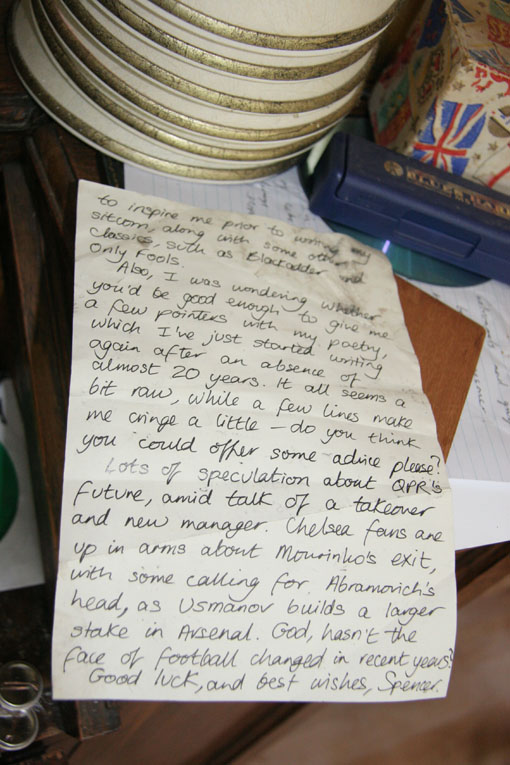 to inspire me prior to writing my
sitcom, along with some other
classics, such as Blackadder and
Only Fools.
Also, I was wondering whether
you'd be good enough to give me
a few pointers with my poetry,
which I've just started writing
again after an absence of
almost 20 years. It all seems a
bit raw, while a few lines make
me cringe a little – do you think
you could offer some advice please?
Lots of speculation about QPR's
future, amid talk of a takeover
and new manager. Chelsea fans are
up in arms about Mourinho's exit,
with some calling for Abramovich's
head, as Usmanov builds a larger
stake in Arsenal. God, hasn't the
face of football changed in recent years?
Good luck, and best wishes, Spencer.